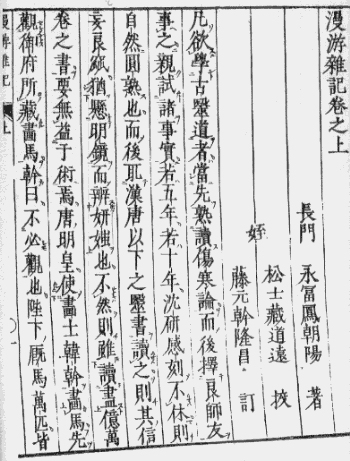 漫游雜記卷之上
長門 永冨鳳朝陽 著
松士藏道遠 挍
姪
藤元幹隆昌 訂
凡欲學古毉道者當先熟讀傷寒論而後擇良師友
事之親試諸事實若五年若十年沈研感刻不休則
自然圓熟也而後取漢唐以下之毉書讀之則其信
妄良窳猶懸明鏡而辨妍媸也不然則雖讀盡億萬
卷之書要無益于術焉唐明皇使畫士韓幹畫馬先
觀御府所藏畫馬幹曰不必觀也陛下厩馬萬匹皆
漫游雜記 上